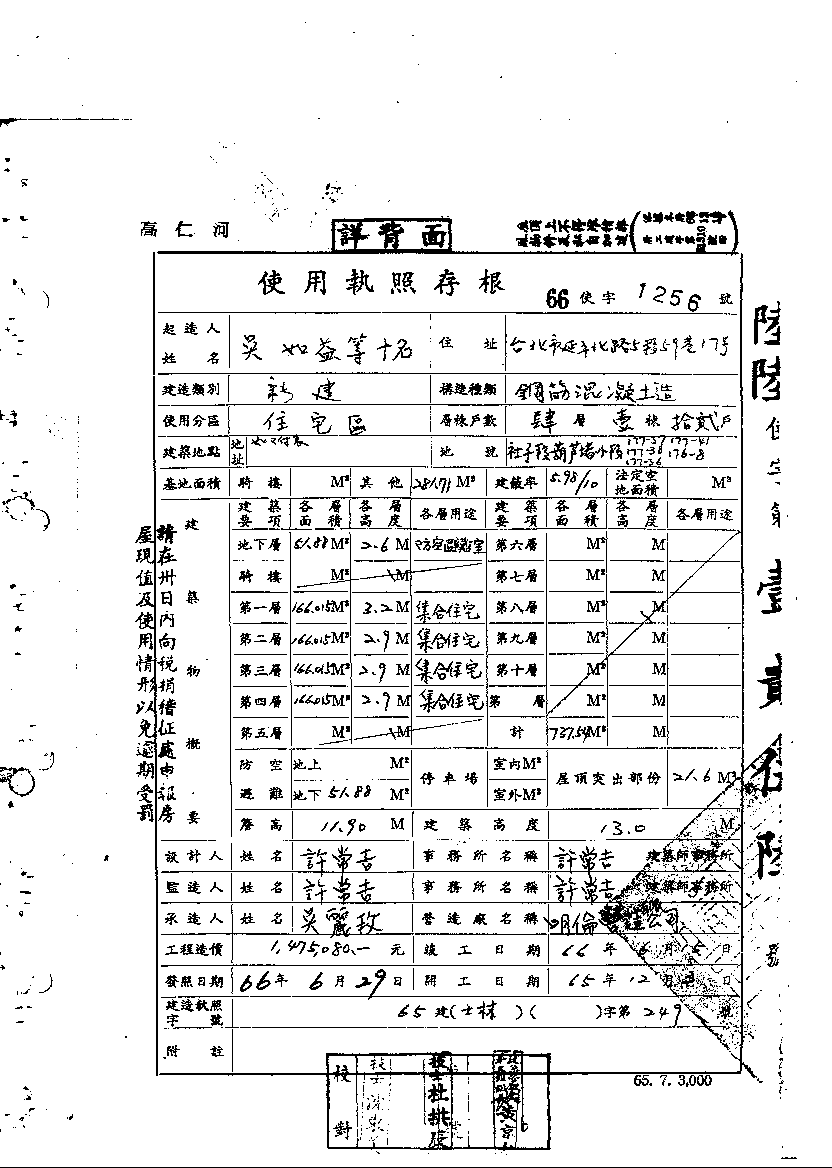 高仁河
詳背面
使用執照存根
66 使字 1256 號
起造人姓名 吳如益等十名 住址 台北市延平北路5段59巷17号
建造類別 新建 構造種類 鋼筋混凝土造
使用分區 住宅區 層棟戶數 肆層 壹棟 拾貳戶
建築地點 地址 地號 社子段葫芦堵小段 177-37 177-41 177-36 176-8
基地面積 騎樓 M² 其他 M² 建蔽率 5.98/10 法定空地面積 M²
建築物概要
建築要項 各層面積 各層高度 各層用途 建築要項 各層面積 各層高度 各層用途
地下層 51.88 M² 2.6 M 第六層 M² M
騎樓 M² M 第七層 M² M
第一層 166.015 M² 3.2 M 集合住宅 第八層 M² M
第二層 166.015 M² 2.9 M 集合住宅 第九層 M² M
第三層 166.015 M² 2.9 M 集合住宅 第十層 M² M
第四層 166.015 M² 2.9 M 集合住宅 第 層 M² M
第五層 M² M 計 737.54 M² M
防空避難 地上 M² 停車場 室內M² 屋頂突出部份 21.6 M²
地下 51.88 室外M²
簷高 11.90 M 建築高度 13.0 M
設計人 姓名 許常吉 事務所名稱 許常吉 建築師事務所
監造人 姓名 許常吉 事務所名稱 許常吉 建築師事務所
承造人 姓名 吳麗玫 營造廠名稱 明倫 公司
工程造價 1,475,080.- 元 竣工日期 66年 6月 15日
發照日期 66年 6月 29日 開工日期 65年 12月 日
建造執照字號 65 建(士林)( )字第 249 號
附註
65. 7. 3,000
校對
請在卅日內向稅捐稽征處申報房
屋現值及使用情形以免逾期受罰